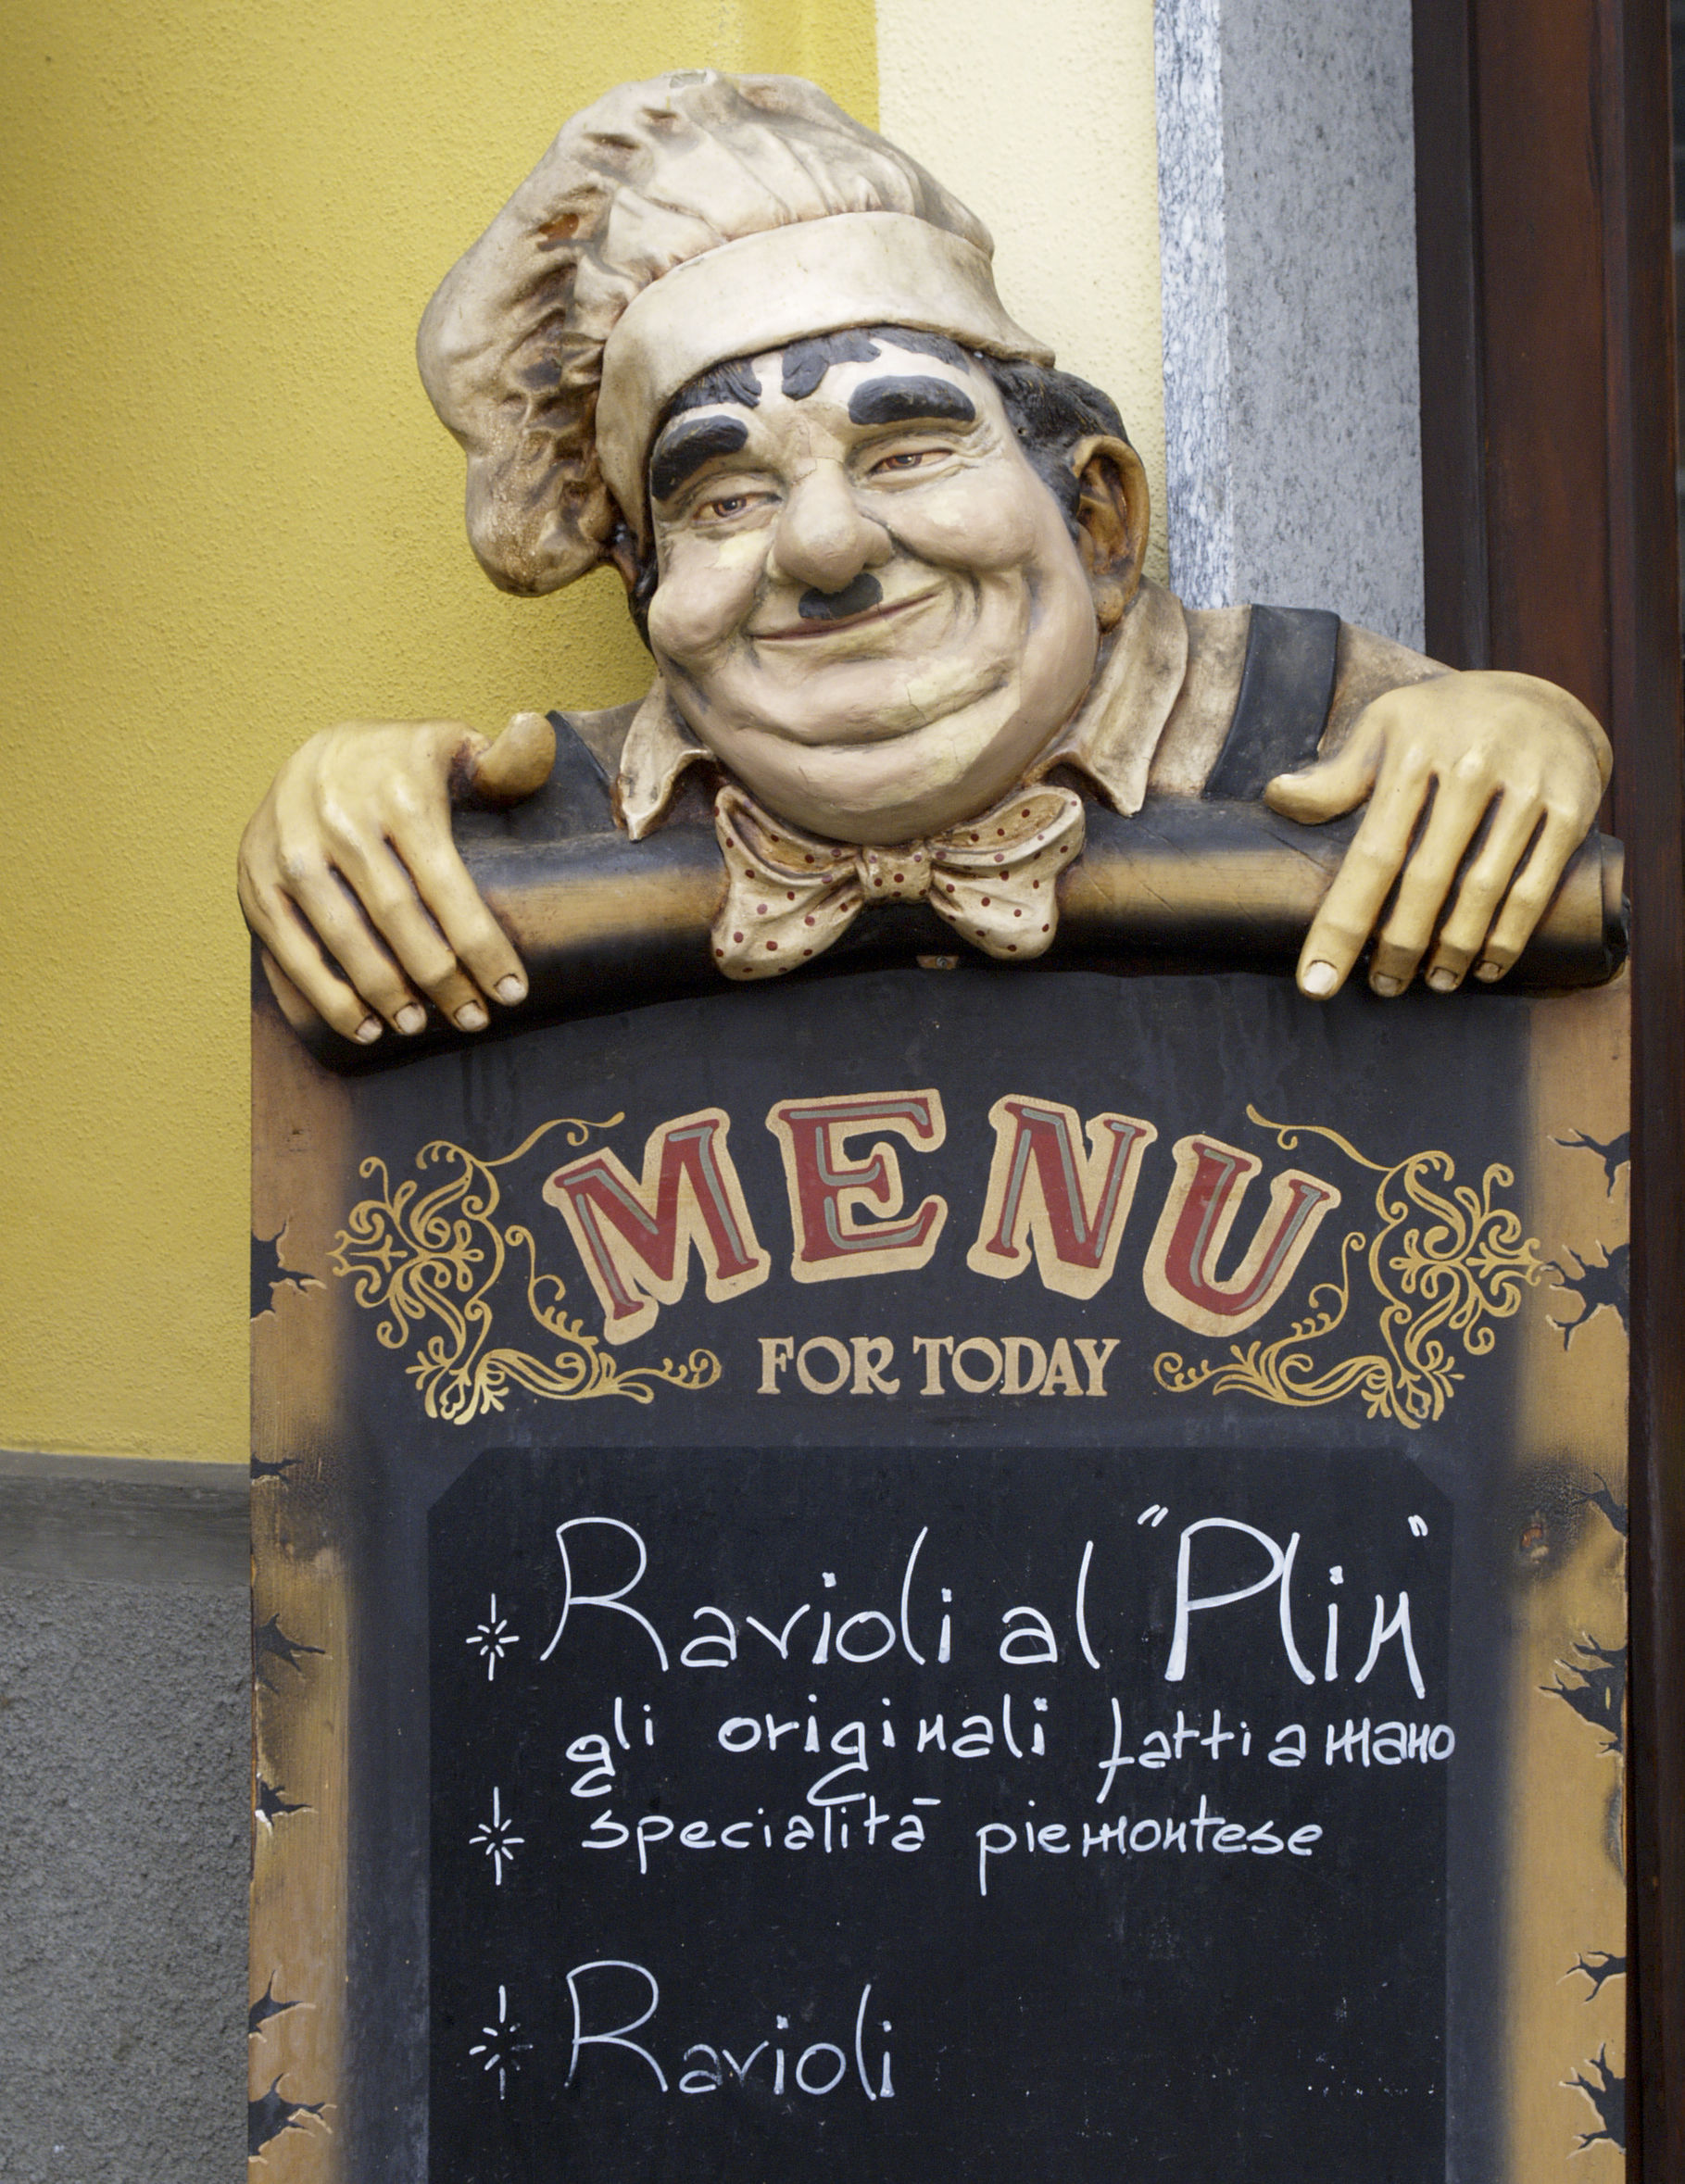 MENU
FOR TODAY
Ravioli al "Plin"
gli originali fatti a mano
specialità piemontese
Ravioli